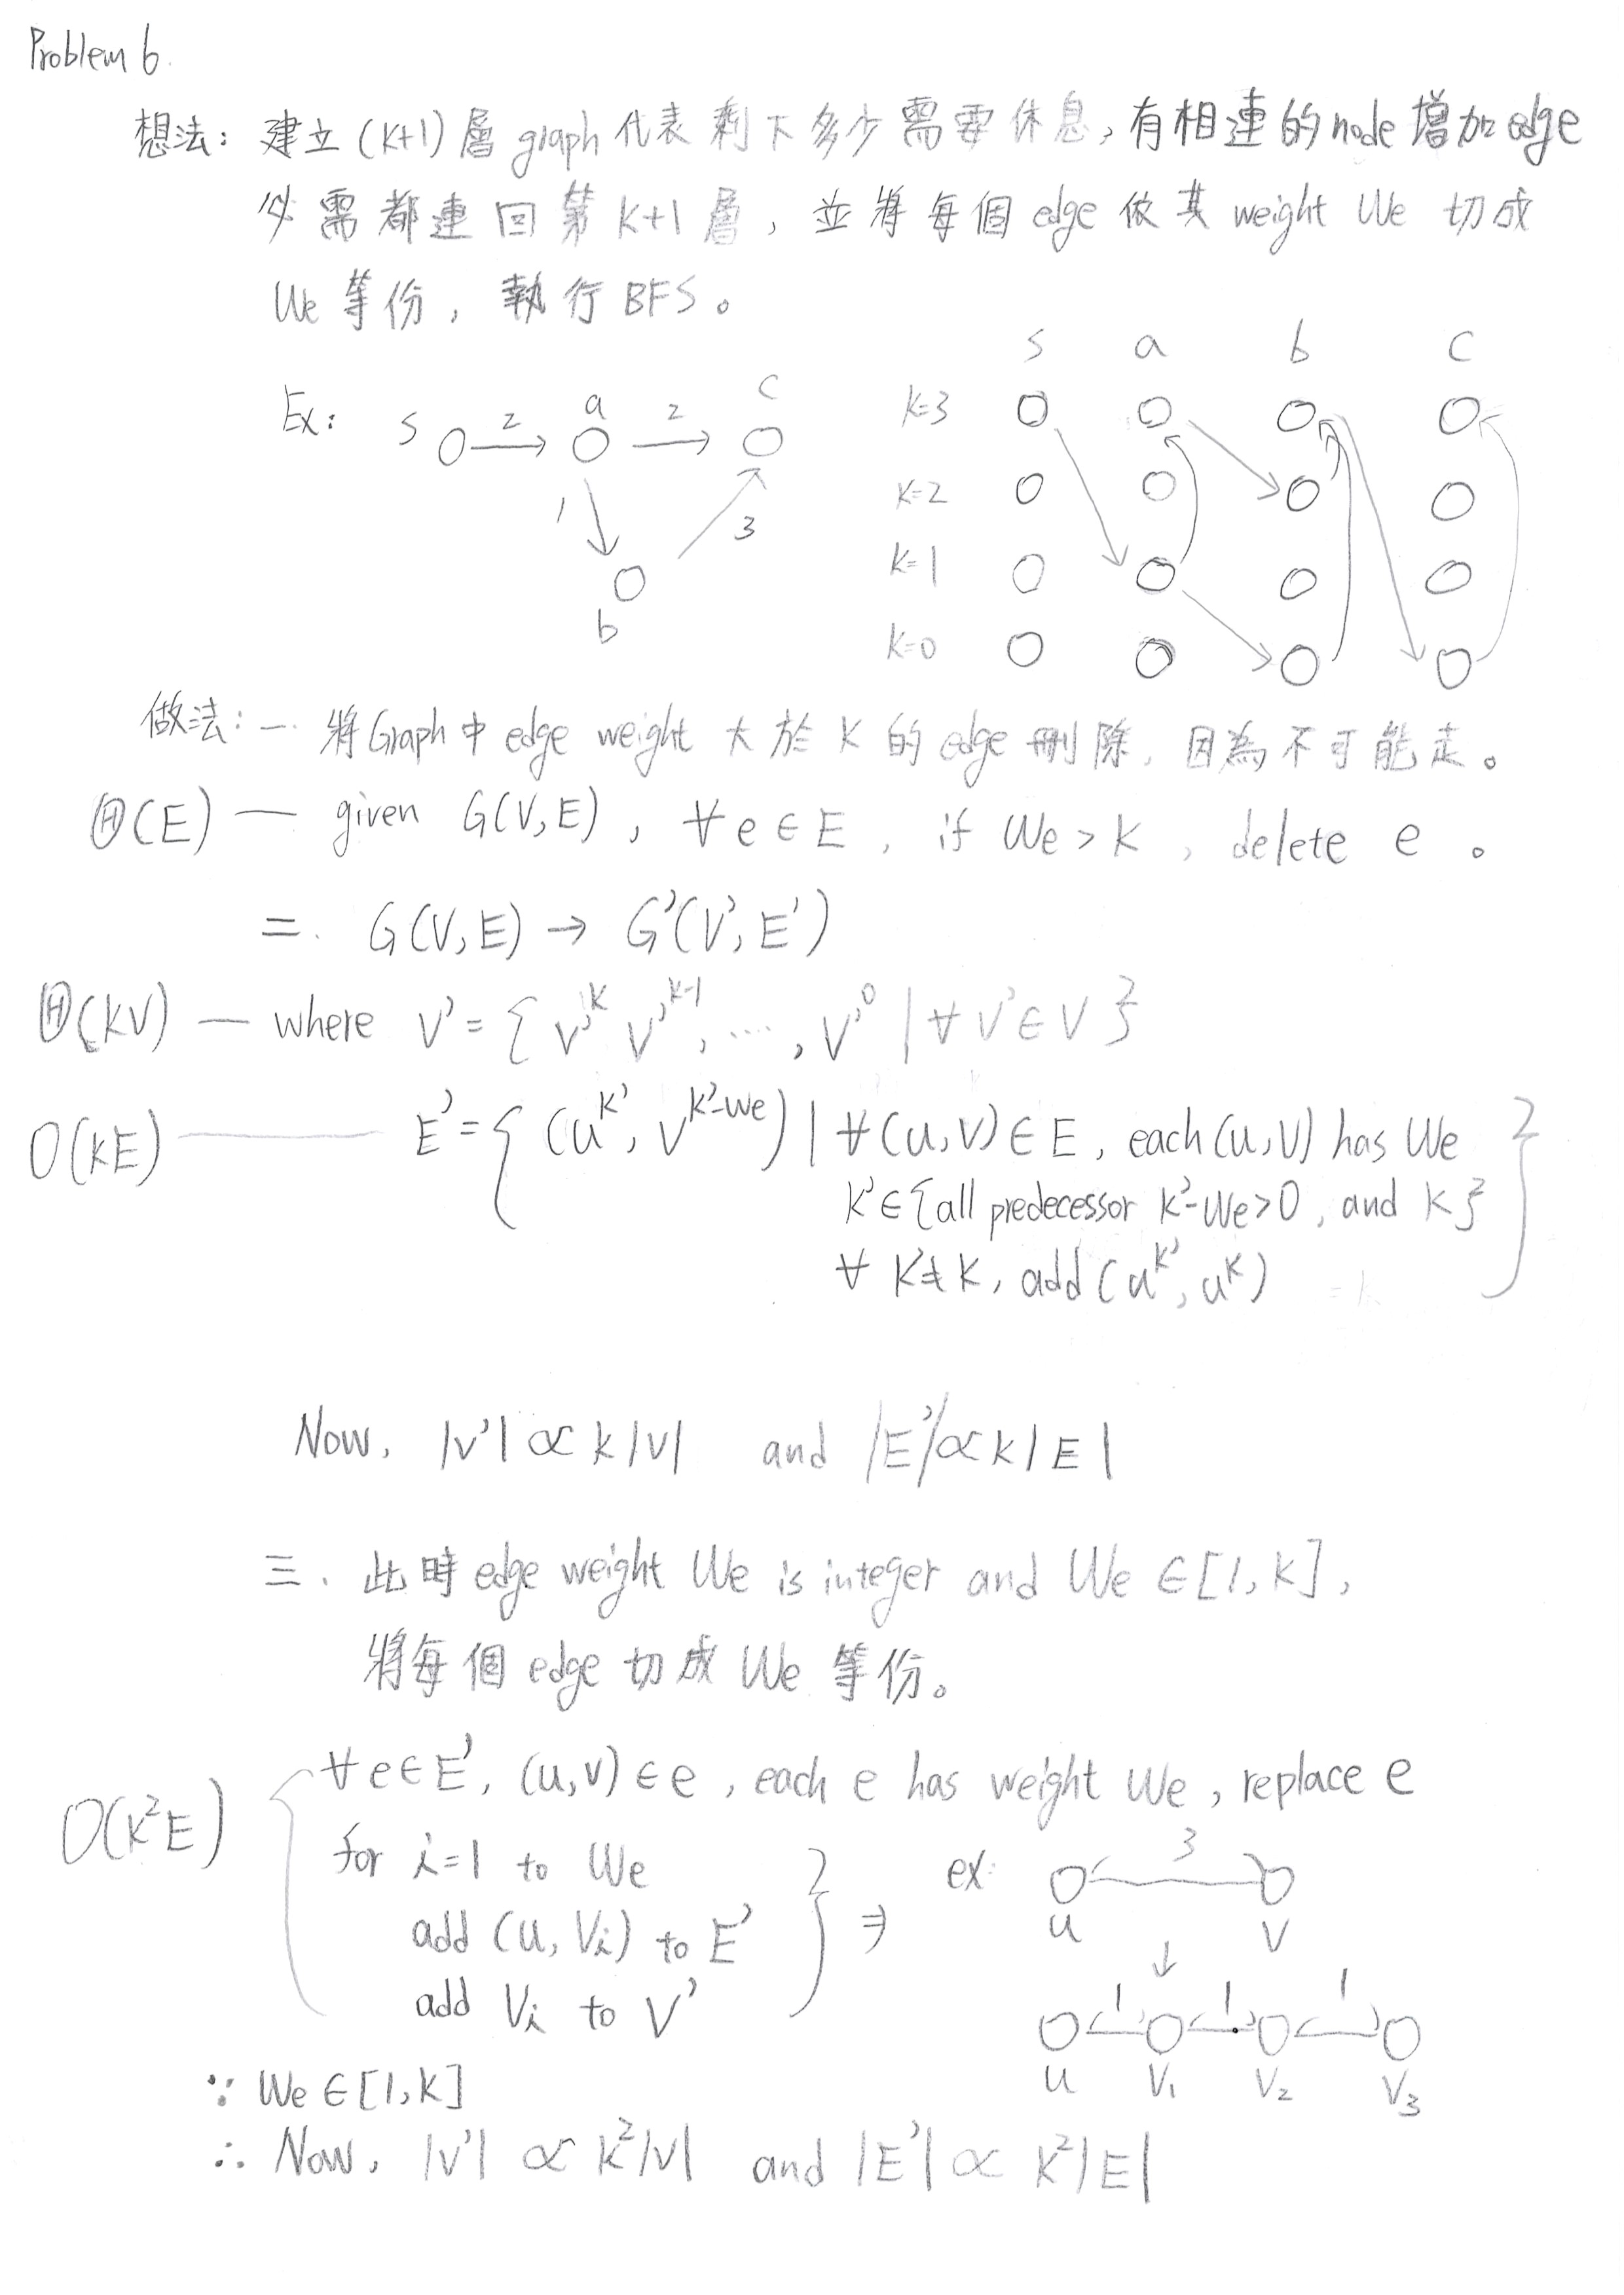 Problem 6.
想法: 建立 (k+1) 層 graph 代表剩下多少需要休息, 有相連的 node 增加 edge
必需都連回第 k+1 層, 並將每個 edge 依其 weight We 切成
We 等份, 執行 BFS。
Ex: s 2 a 2 c
1 3
b
s a b c
k=3
k=2
k=1
k=0
做法: 一. 將 Graph 中 edge weight 大於 K 的 edge 刪除, 因為不可能走。
Θ(E) — given G(V, E), ∀ e ∈ E, if We > K, delete e。
二. G(V, E) → G'(V', E')
Θ(kV) — where V' = { V'^k V'^k-1, ...., V'^0 | ∀ V' ∈ V }
O(kE) — E' = { (u^k', v^k'-we) | ∀ (u, v) ∈ E, each (u, v) has We
k' ∈ {all predecessor k'-We > 0, and k}
∀ k' ≠ k, add (u^k', u^k) }
Now, |V'| ∝ k|V| and |E'| ∝ k|E|
三. 此時 edge weight We is integer and We ∈ [1, k],
將每個 edge 切成 We 等份。
O(k²E) { ∀ e ∈ E', (u, v) ∈ e, each e has weight We, replace e
for i=1 to We
add (u, Vi) to E'
add Vi to V' } ⇒ ex: 3
u v
↓
1 1 1
u V₁ V₂ V₃
∵ We ∈ [1, k]
∴ Now, |V'| ∝ k²|V| and |E'| ∝ k²|E|